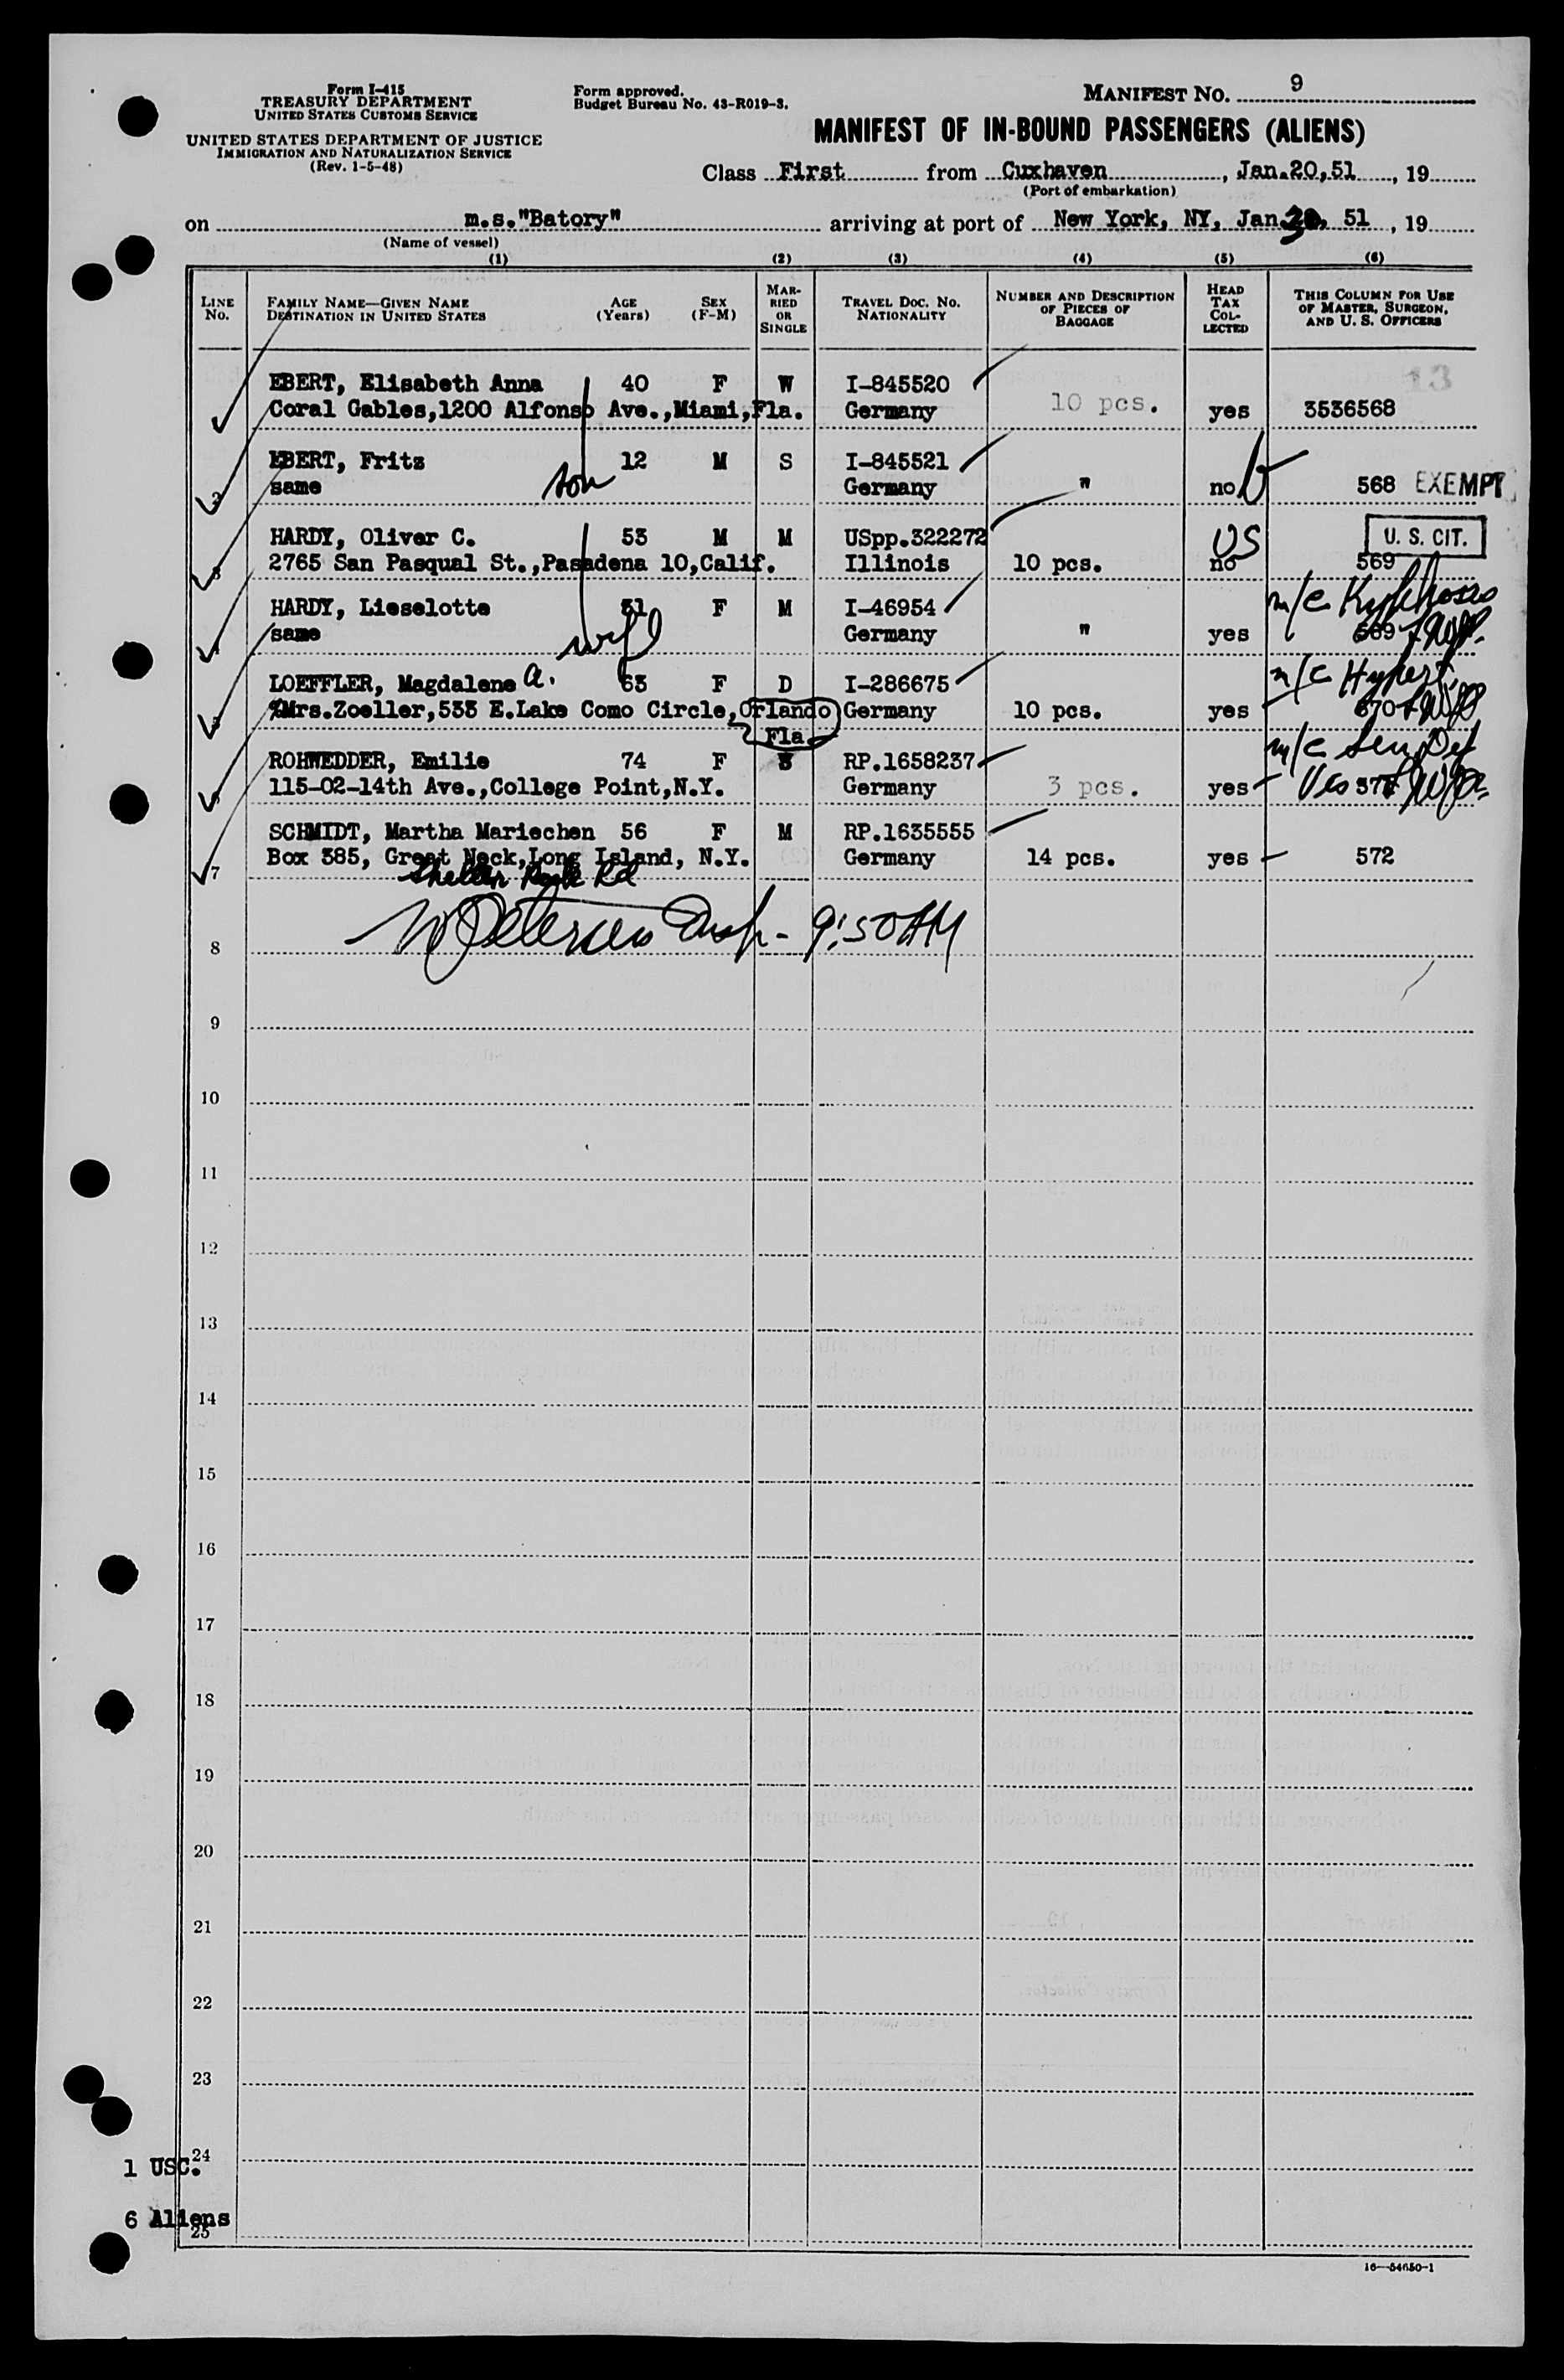 Form I-415
TREASURY DEPARTMENT
UNITED STATES CUSTOMS SERVICE
UNITED STATES DEPARTMENT OF JUSTICE
IMMIGRATION AND NATURALIZATION SERVICE
(Rev. 1-5-48)
Form approved.
Budget Bureau No. 43-R019-3.
MANIFEST NO. 9
MANIFEST OF IN-BOUND PASSENGERS (ALIENS)
Class First from Cuxhaven, Jan.20,51, 19
(Port of embarkation)
on m.s."Batory" arriving at port of New York, NY, Jan.30, 51, 19
(Name of vessel)
(1) (2) (3) (4) (5) (6)
LINE NO. FAMILY NAME—GIVEN NAME DESTINATION IN UNITED STATES AGE (Years) SEX (F-M) MARRIED OR SINGLE TRAVEL DOC. NO. NATIONALITY NUMBER AND DESCRIPTION OF PIECES OF BAGGAGE HEAD TAX COLLECTED THIS COLUMN FOR USE OF MASTER, SURGEON, AND U. S. OFFICERS
13
EBERT, Elisabeth Anna 40 F W I-845520
Coral Gables,1200 Alfonso Ave.,Miami,Fla. Germany 10 pcs. yes 3536568
EBERT, Fritz 12 M S I-845521
2 same son Germany " no 568 EXEMPT
HARDY, Oliver C. 53 M M USpp.322272 US U. S. CIT.
3 2765 San Pasqual St.,Pasadena 10,Calif. Illinois 10 pcs. no 569
HARDY, Lieselotte 31 F M I-46954 m/c Kyphosis
4 same wife Germany " yes 569
LOEFFLER, Magdalene A. 63 F D I-286675 m/c Hypert.
5 %Mrs.Zoeller,533 E.Lake Como Circle,Orlando Germany 10 pcs. yes 570
Fla.
ROHWEDDER, Emilie 74 F S RP.1658237 m/c Sen. Def
6 115-02-14th Ave.,College Point,N.Y. Germany 3 pcs. yes 571
SCHMIDT, Martha Mariechen 56 F M RP.1635555
7 Box 385, Great Neck,Long Island, N.Y. Germany 14 pcs. yes 572
Shelter Rock Rd
Petersen Insp- 9:50AM
8
9
10
11
12
13
14
15
16
17
18
19
20
21
22
23
24
1 USC.
6 Aliens
25
16—54650-1